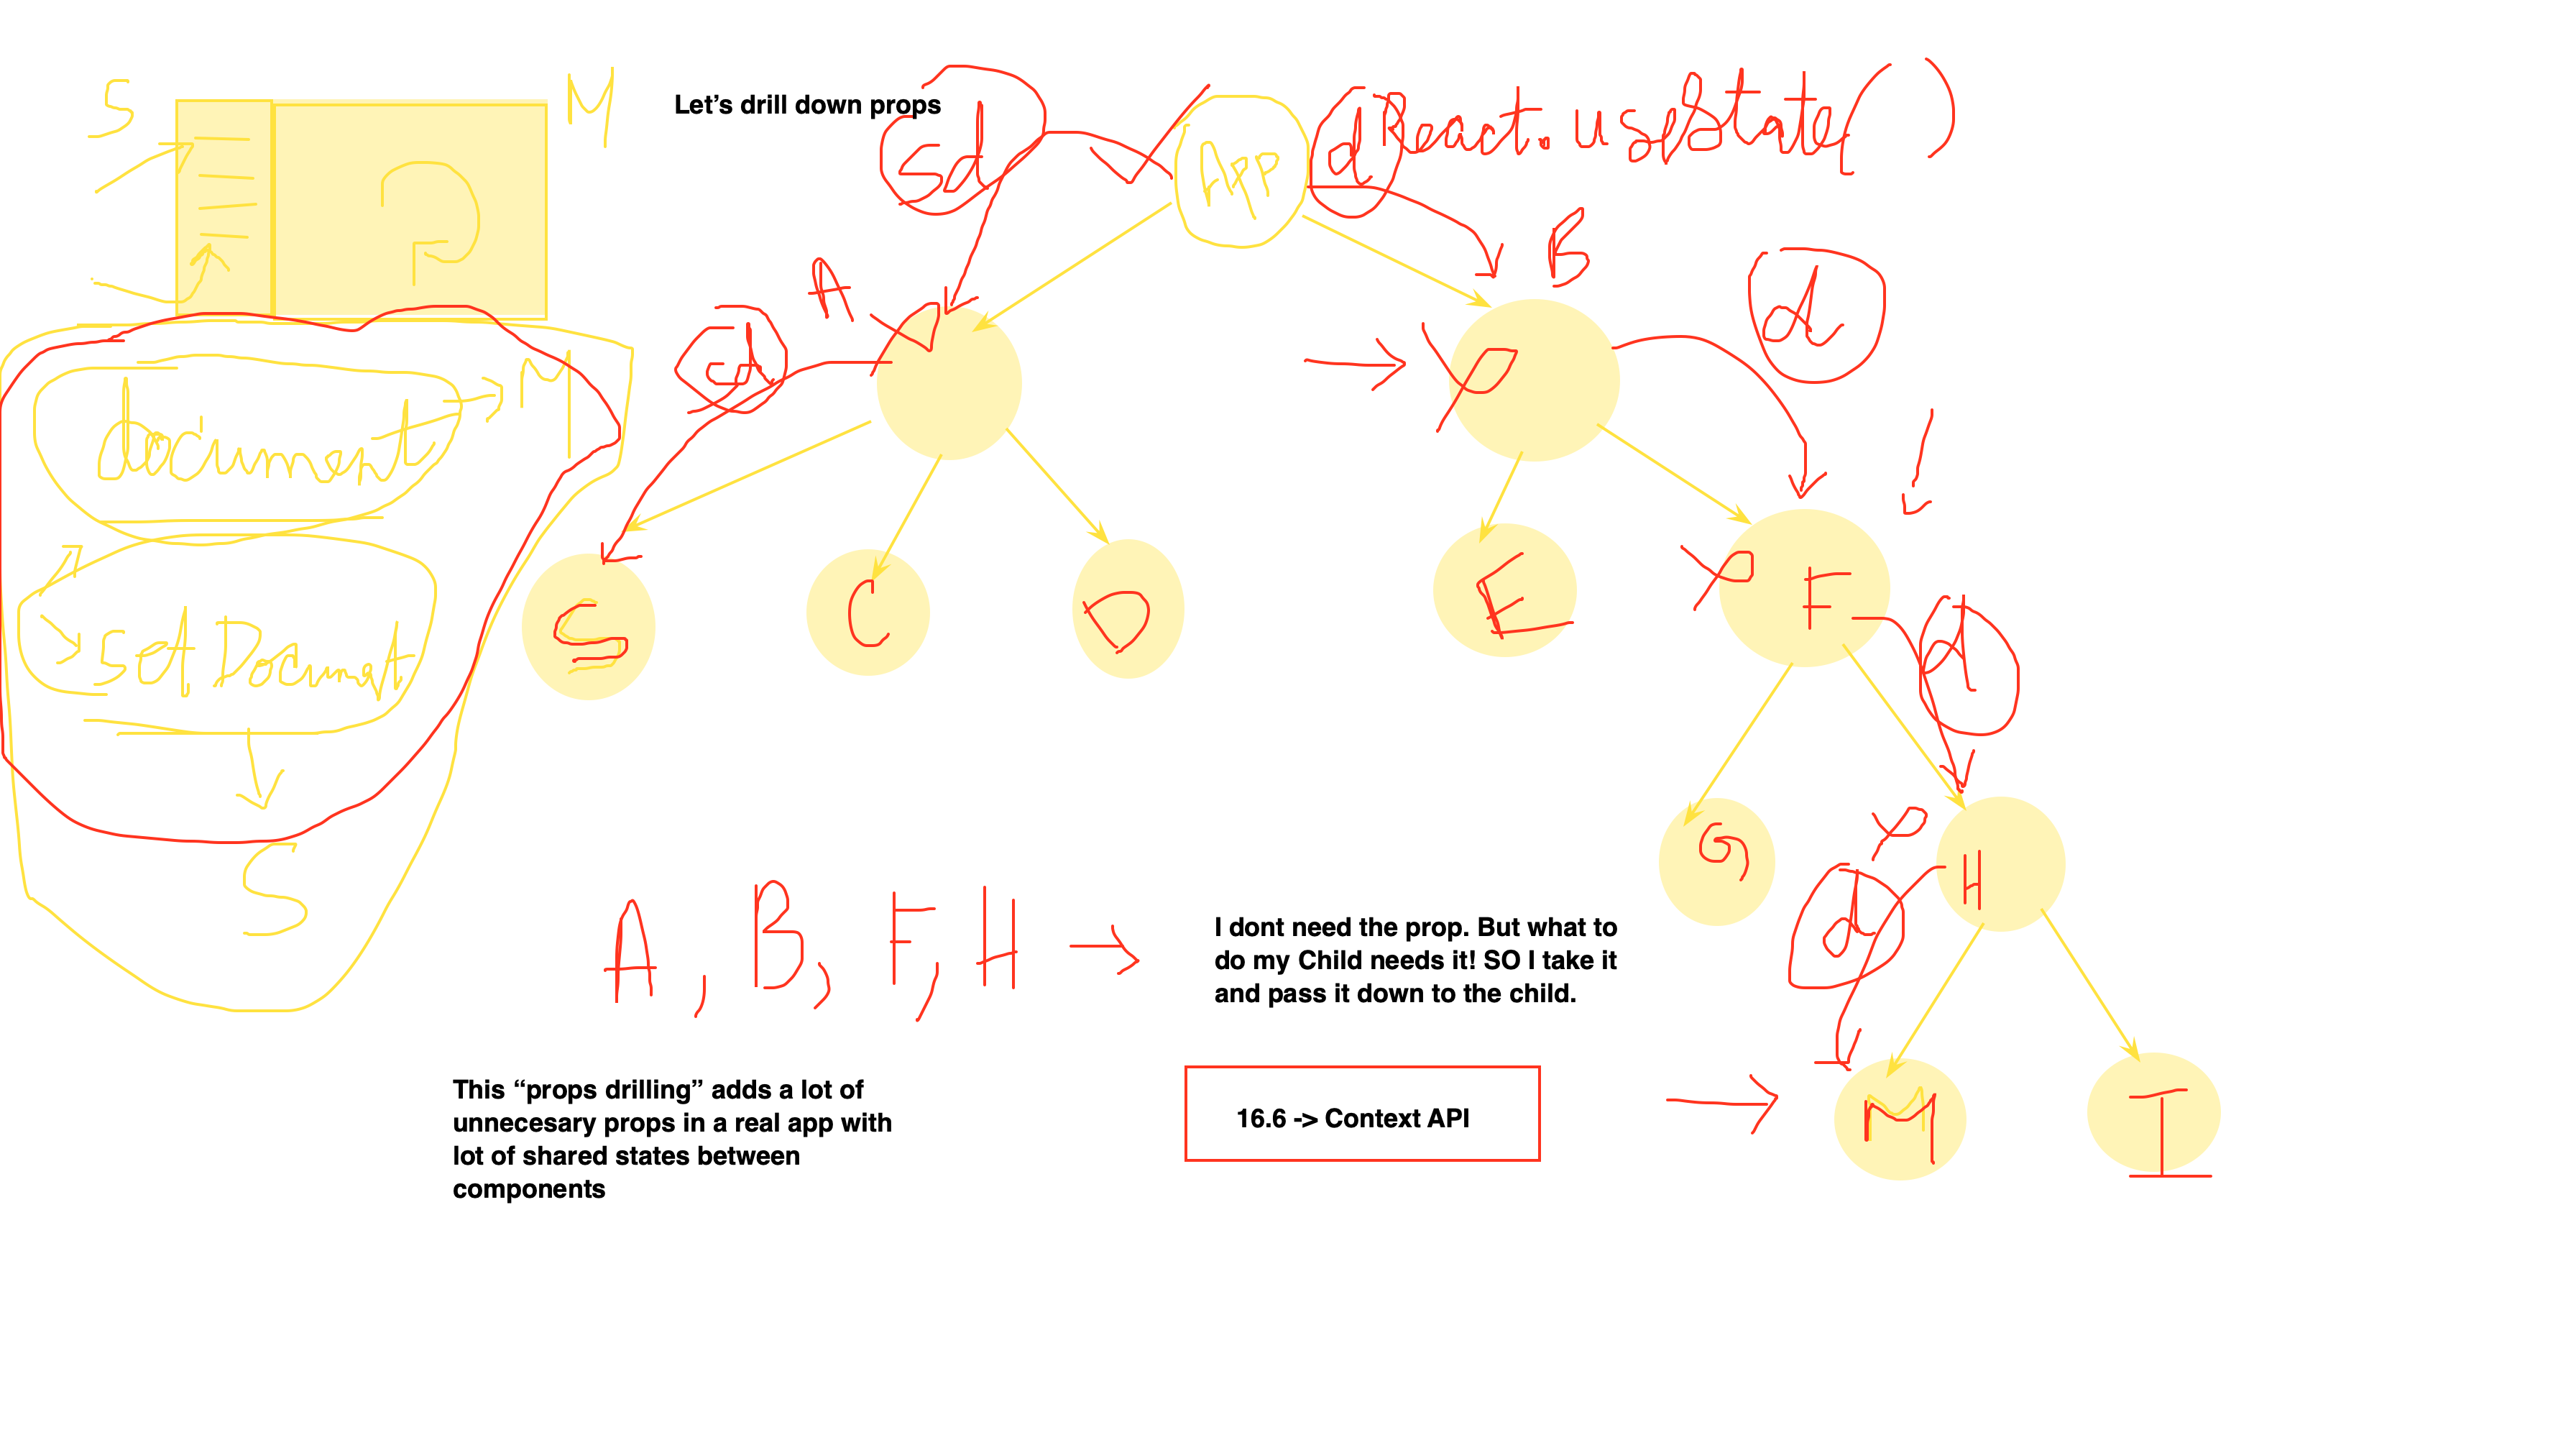 S
M
Let’s drill down props
sd
App
d
React.useState( )
A
B
sd
d
document
M
S
C
D
E
F
d
setDocument
S
G
H
d
A, B, F, H →
I dont need the prop. But what to
do my Child needs it! SO I take it
and pass it down to the child.
M
I
This “props drilling” adds a lot of
unnecesary props in a real app with
lot of shared states between
components
16.6 -> Context API